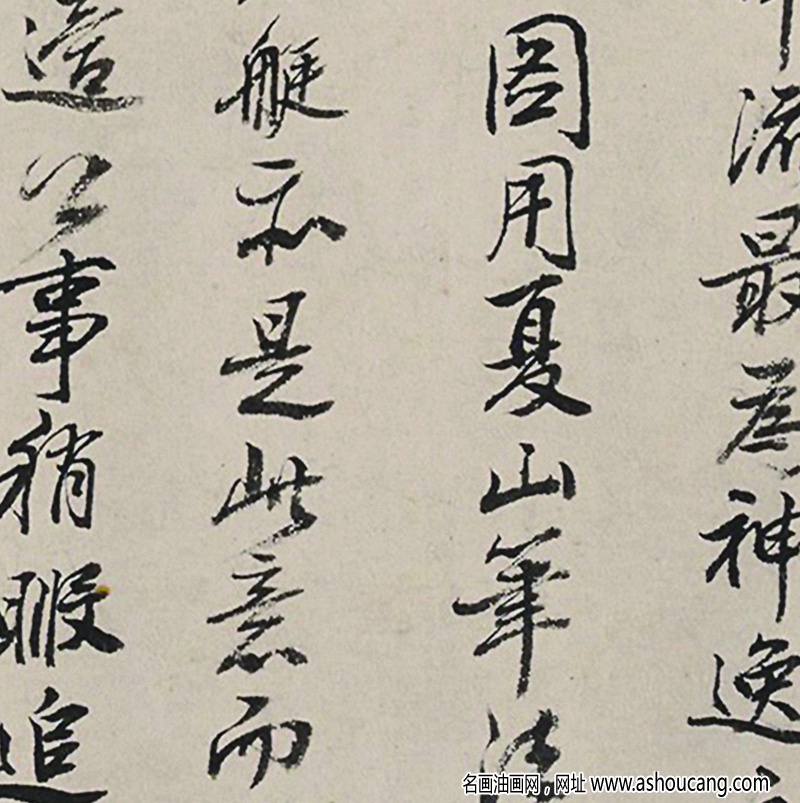 流最為神逸
圖用夏山筆法
艇亦是此意而
造公事稍暇追
名画油画网,网址 www.ashoucang.com